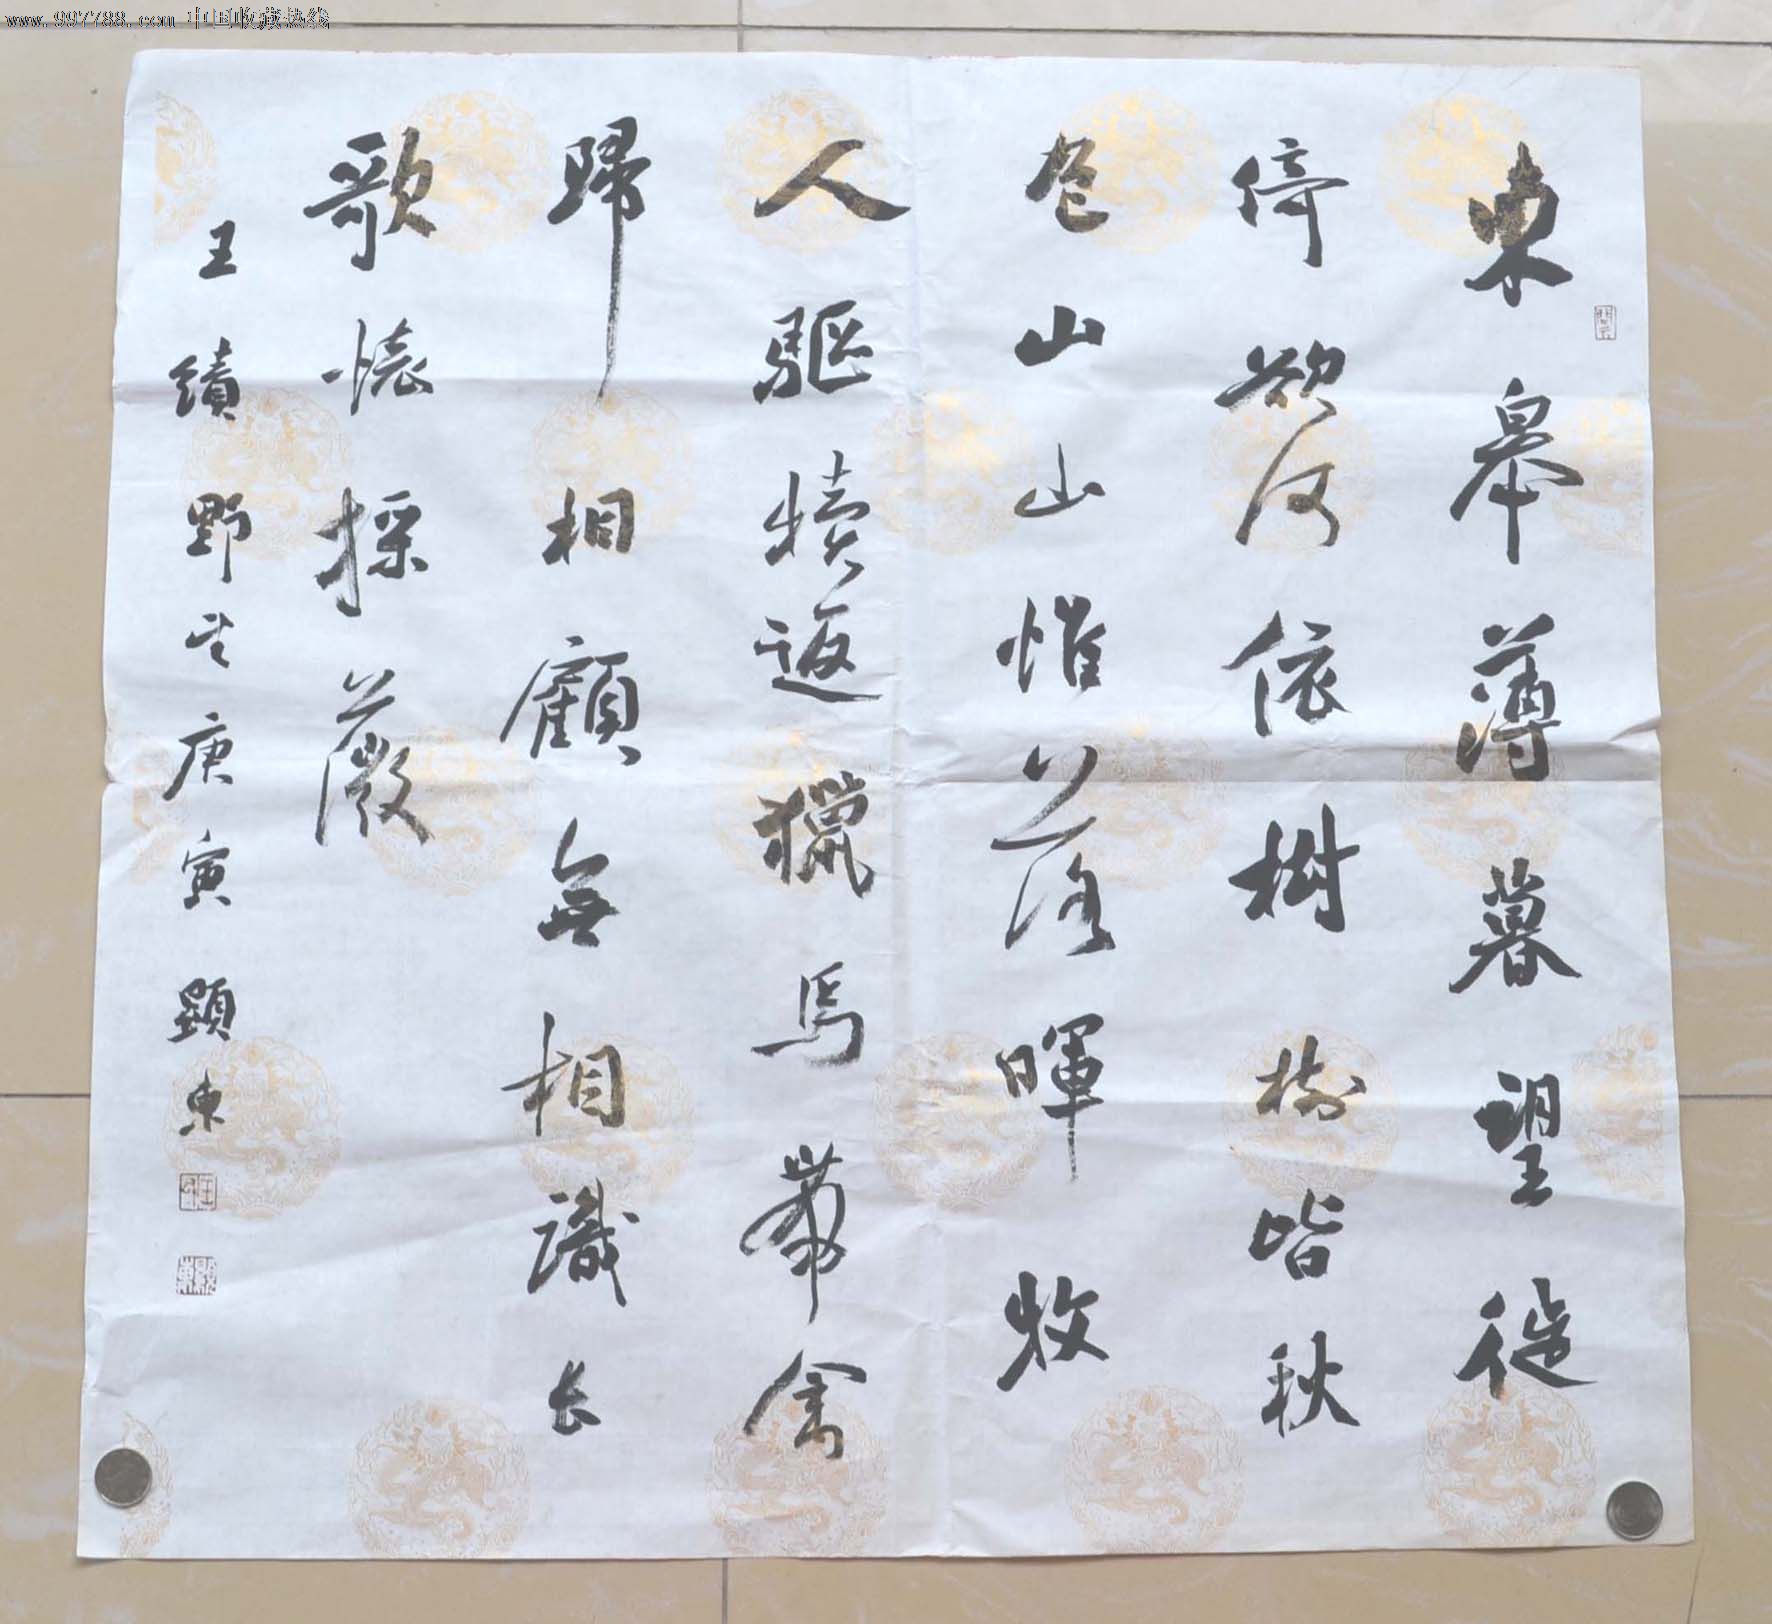 www.997788.com 中国收藏热线
東皋薄暮望徙
倚欲何依樹樹皆秋
色山山惟落暉牧
人驅犢返獵馬帶禽
歸相顧無相識長
歌懷採薇
王績野望庚寅顯東